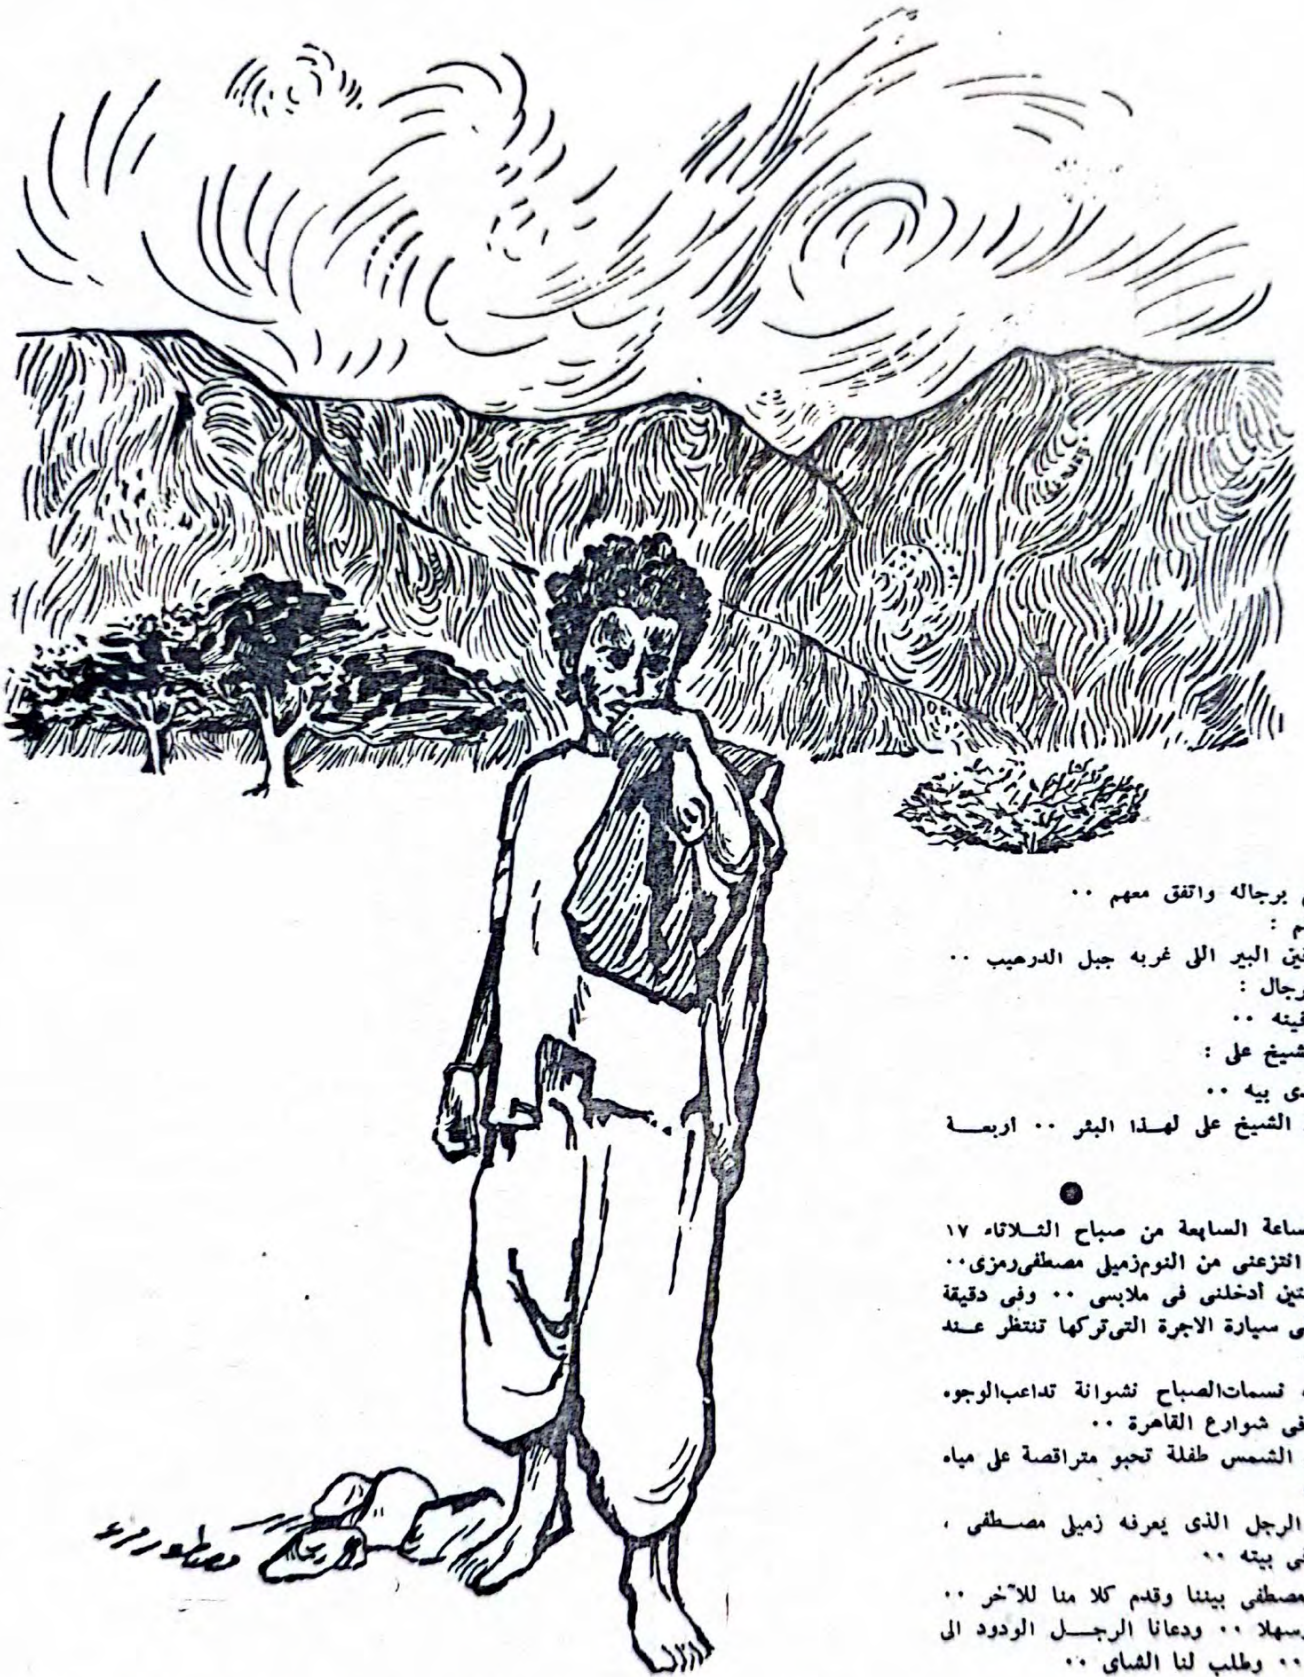 برجاله واتفق معهم ٠٠
:
البير اللى غربه جبل الدرهيب ٠٠
:
٠٠
على :
بيه ٠٠
الشيخ على لهـذا البئر ٠٠ اربعـــة
الساعة السابعة من صباح الثـلاثاء ١٧
انتزعنى من النوم زميلى مصطفى رمزى٠٠
أدخلنى فى ملابسى ٠٠ وفى دقيقة
سيارة الاجرة التى تركها تنتظر عــند
نسمات الصباح نشوانة تداعب الوجوه
فى شوارع القاهرة ٠٠
الشمس طفلة تحبو متراقصة على مياه
الرجل الذى يعرفه زميلى مصـطفى ،
فى بيته ٠٠
مصطفى بيننا وقدم كلا منا للآخر ٠٠
وسهلا ٠٠ ودعانا الرجــل الودود الى
٠٠ وطلب لنا الشاى ٠٠